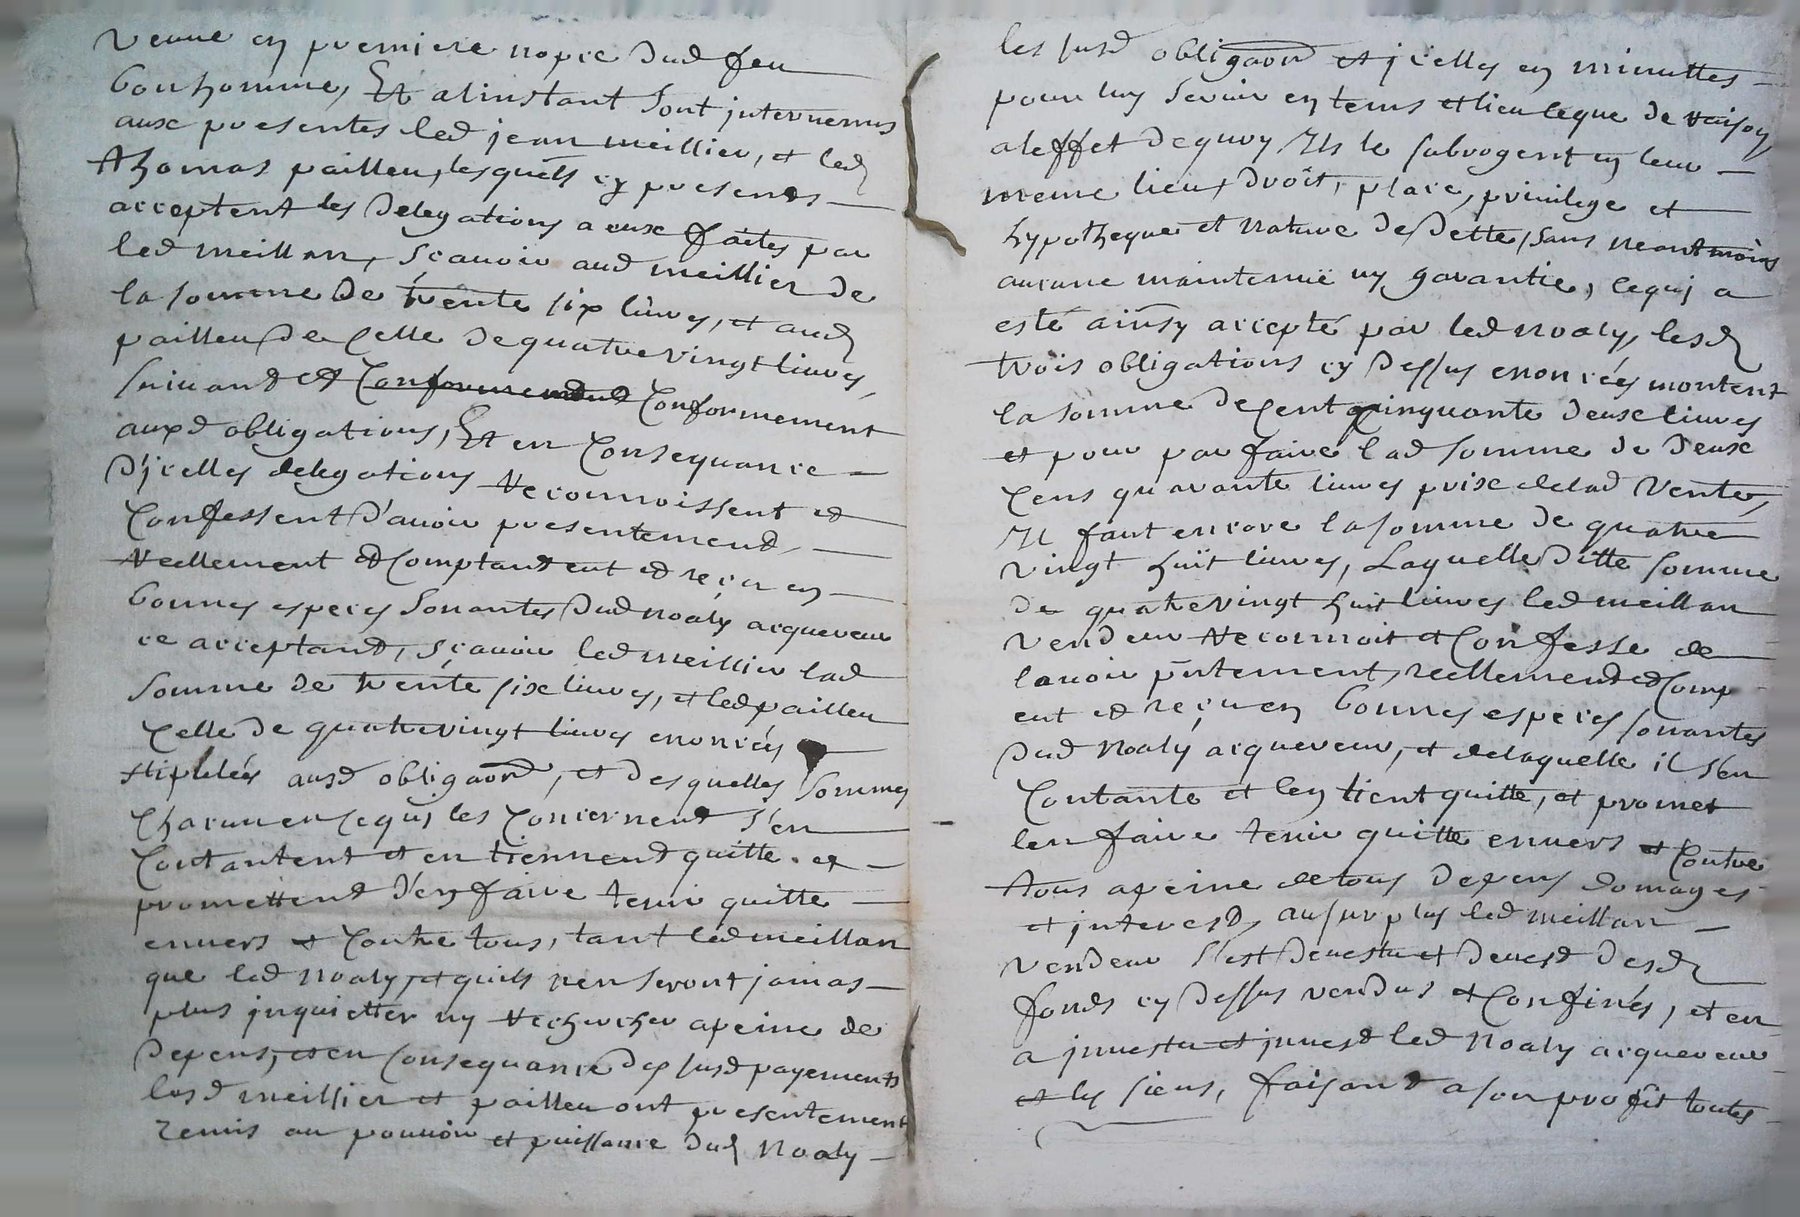 veuve en premiere nopce dud feu
bonhomme, Et alinstant sont intervenus
aux presentes led jean meillier, et led
thomas pailleu, lesquels cy presents
acceptent les delegations a eux faites par
led meillan, sçavoir aud meillier de
la somme de trente six livres, et aud
pailleu de celle de quatre vingt livres
suivant et Conformement Conformement
auxd obligations, Et en Consequance
d'jcelles delegations Reconnoissent et
Confessent d'avoir presentement
Reellement et Comptant eut et reçu en
bonnes especes sonantes dud noaly acquereur
ce acceptant, sçavoir led meillier lad
somme de trente six livres, et led pailleu
Celle de quatre vingt livres enoncées
stipulées ausd obligaons, et desquelles sommes
Chacun en ce qui les Concernent s'en
Contantent et en tiennent quitte et
promettent d'en faire tenir quitte
envers et Contre tous, tant led meillan
que led noaly, et quils nen seront jamas
plus jnquietter ny Rechercher apeine de
depens, et en Consequance des susd payements
lesd meillier et pailleu ont presentement
remis au pouvoir et puissance dud Noaly
les susd obligaons et jcelles en minuttes
pour luy servir en tems et lieu ceque de raison
aleffet dequoy Ils le subrogent en leur
meme lieu, droit, place, privilege et
hypotheque et nature de dette, sans neantmoins
aucune maintenüe ny garantie, cequi a
esté ainsy accepté par led noaly, lesd
trois obligations cy dessus enoncées montent
la somme de Cent Cinquante deux livres
et pour parfaire lad somme de deux
Cens quarante livres prix delad vente,
Il faut encore la somme de quatre
vingt huit livres, Laquelle ditte somme
de quatre vingt huit livres led meillan
vendeur Reconnoit et Confesse de
lavoir pntement, reellement et Comp
eut et reçu en bonnes especes sonantes
dud Noaly acquereur, et delaquelle il s'en
Contante et len tient quitte, et promet
len faire tenir quitte envers et Contre
tous apeine de tous depens domages
et interests, ausurplus led meillan
vendeur s'est devestu et devest desd
fonds cy dessus vendus et Confinés, et en
a jnvestu et jnvest led Noaly acquereur
et les siens, faisant a son profit toutes